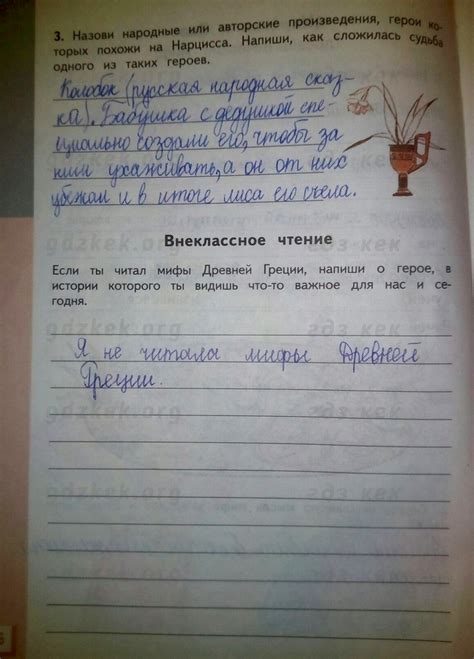 3. Назови народные или авторские произведения, герои ко-
торых похожи на Нарцисса. Напиши, как сложилась судьба
одного из таких героев.
Колобок (русская народная сказ-
ка). Бабушка с дедушкой спе-
циально создали его, чтобы за
ним ухаживать, а он от них
убежал и в итоге лиса его съела.
gdzkek.org гдз кек
Внеклассное чтение
Если ты читал мифы Древней Греции, напиши о герое, в
истории которого ты видишь что-то важное для нас и се-
годня.
gdzkek.org гдз кек
Я не читала мифы Древней
Греции.
gdzkek.org гдз кек
gdzkek.org гдз кек